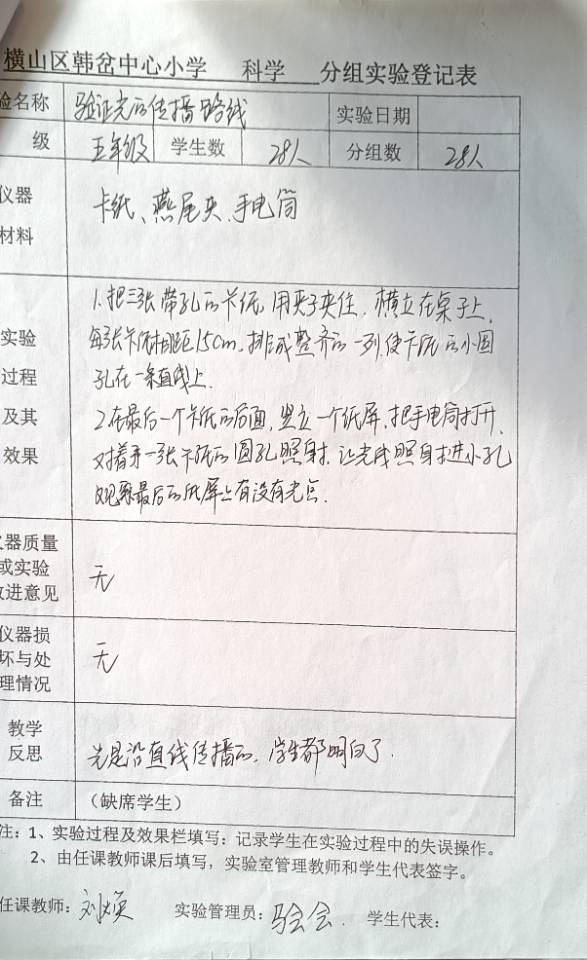 横山区韩岔中心小学 科学 分组实验登记表
验名称 验证光的传播路线 实验日期
级 五年级 学生数 28人 分组数 28人
仪器
材料
卡纸、燕尾夹、手电筒
实验
过程
及其
效果
1.把三张带孔的卡纸,用夹子夹住,横立在桌子上,
每张卡纸相距15cm,排成整齐的一列,使卡纸的小圆
孔在一条直线上.
2.在最后一个卡纸的后面,竖立一个纸屏,把手电筒打开,
对着第一张卡纸的圆孔照射,让光线照射进小孔
观察最后的纸屏上有没有光点.
仪器质量
或实验
改进意见
无
仪器损
坏与处
理情况
无
教学
反思
光是沿直线传播的,学生都明白了.
备注 (缺席学生)
注:1、实验过程及效果栏填写:记录学生在实验过程中的失误操作。
2、由任课教师课后填写,实验室管理教师和学生代表签字。
任课教师:刘焕 实验管理员: 学生代表: